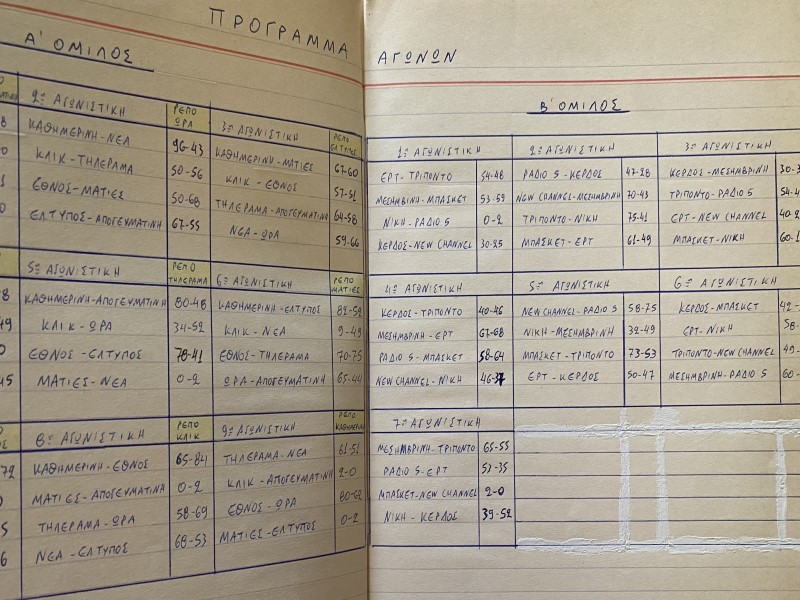 ΠΡΟΓΡΑΜΜΑ
Α' ΟΜΙΛΟΣ
2η ΑΓΩΝΙΣΤΙΚΗ ΡΕΠΟ ΩΡΑ
ΚΑΘΗΜΕΡΙΝΗ-ΝΕΑ 96-43
ΚΛΙΚ-ΤΗΛΕΡΑΜΑ 50-56
ΕΘΝΟΣ-ΜΑΤΙΕΣ 50-68
ΕΛΤΥΠΟΣ-ΑΠΟΓΕΥΜΑΤΙΝΗ 67-55
3η ΑΓΩΝΙΣΤΙΚΗ ΡΕΠΟ ΕΛΤΥΠΟΣ
ΚΑΘΗΜΕΡΙΝΗ-ΜΑΤΙΕΣ 67-60
ΚΛΙΚ-ΕΘΝΟΣ 57-51
ΤΗΛΕΡΑΜΑ-ΑΠΟΓΕΥΜΑΤΙΝΗ 64-58
ΝΕΑ-ΩΡΑ 59-66
5η ΑΓΩΝΙΣΤΙΚΗ ΡΕΠΟ ΤΗΛΕΡΑΜΑ
ΚΑΘΗΜΕΡΙΝΗ-ΑΠΟΓΕΥΜΑΤΙΝΗ 80-48
ΚΛΙΚ-ΩΡΑ 34-52
ΕΘΝΟΣ-ΕΛΤΥΠΟΣ 78-41
ΜΑΤΙΕΣ-ΝΕΑ 0-2
6η ΑΓΩΝΙΣΤΙΚΗ ΡΕΠΟ ΜΑΤΙΕΣ
ΚΑΘΗΜΕΡΙΝΗ-ΕΛΤΥΠΟΣ 82-52
ΚΛΙΚ-ΝΕΑ 9-49
ΕΘΝΟΣ-ΤΗΛΕΡΑΜΑ 70-75
ΩΡΑ-ΑΠΟΓΕΥΜΑΤΙΝΗ 65-44
8η ΑΓΩΝΙΣΤΙΚΗ ΡΕΠΟ ΚΛΙΚ
ΚΑΘΗΜΕΡΙΝΗ-ΕΘΝΟΣ 65-84
ΜΑΤΙΕΣ-ΑΠΟΓΕΥΜΑΤΙΝΗ 0-2
ΤΗΛΕΡΑΜΑ-ΩΡΑ 58-69
ΝΕΑ-ΕΛΤΥΠΟΣ 68-53
9η ΑΓΩΝΙΣΤΙΚΗ ΡΕΠΟ ΚΑΘΗΜΕΡΙΝΗ
ΤΗΛΕΡΑΜΑ-ΝΕΑ 61-51
ΚΛΙΚ-ΑΠΟΓΕΥΜΑΤΙΝΗ 2-0
ΕΘΝΟΣ-ΩΡΑ 80-62
ΜΑΤΙΕΣ-ΕΛΤΥΠΟΣ 0-2
ΑΓΩΝΩΝ
Β' ΟΜΙΛΟΣ
1η ΑΓΩΝΙΣΤΙΚΗ
ΕΡΤ-ΤΡΙΠΟΝΤΟ 54-48
ΜΕΣΗΜΒΙΝΗ-ΜΠΑΣΚΕΤ 53-59
ΝΙΚΗ-ΡΑΔΙΟ 5 0-2
ΚΕΡΔΟΣ-NEW CHANNEL 30-25
2η ΑΓΩΝΙΣΤΙΚΗ
ΡΑΔΙΟ 5-ΚΕΡΔΟΣ 47-28
NEW CHANNEL-ΜΕΣΗΜΒΡΙΝΗ 70-43
ΤΡΙΠΟΝΤΟ-ΝΙΚΗ 75-41
ΜΠΑΣΚΕΤ-ΕΡΤ 61-49
3η ΑΓΩΝΙΣΤΙΚΗ
ΚΕΡΔΟΣ-ΜΕΣΗΜΒΡΙΝΗ
ΤΡΙΠΟΝΤΟ-ΡΑΔΙΟ 5
ΕΡΤ-NEW CHANNEL
ΜΠΑΣΚΕΤ-ΝΙΚΗ
4η ΑΓΩΝΙΣΤΙΚΗ
ΚΕΡΔΟΣ-ΤΡΙΠΟΝΤΟ 40-46
ΜΕΣΗΜΒΡΙΝΗ-ΕΡΤ 67-68
ΡΑΔΙΟ 5-ΜΠΑΣΚΕΤ 58-64
NEW CHANNEL-ΝΙΚΗ 46-37
5η ΑΓΩΝΙΣΤΙΚΗ
NEW CHANNEL-ΡΑΔΙΟ 5 58-75
ΝΙΚΗ-ΜΕΣΗΜΒΡΙΝΗ 32-49
ΜΠΑΣΚΕΤ-ΤΡΙΠΟΝΤΟ 73-53
ΕΡΤ-ΚΕΡΔΟΣ 50-47
6η ΑΓΩΝΙΣΤΙΚΗ
ΚΕΡΔΟΣ-ΜΠΑΣΚΕΤ
ΕΡΤ-ΝΙΚΗ
ΤΡΙΠΟΝΤΟ-NEW CHANNEL
ΜΕΣΗΜΒΡΙΝΗ-ΡΑΔΙΟ 5
7η ΑΓΩΝΙΣΤΙΚΗ
ΜΕΣΗΜΒΡΙΝΗ-ΤΡΙΠΟΝΤΟ 65-55
ΡΑΔΙΟ 5-ΕΡΤ 57-35
ΜΠΑΣΚΕΤ-NEW CHANNEL 2-0
ΝΙΚΗ-ΚΕΡΔΟΣ 39-52